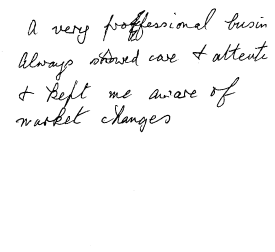 A very proffessional busin
Always showed care & attenti
& kept me aware of
market changes